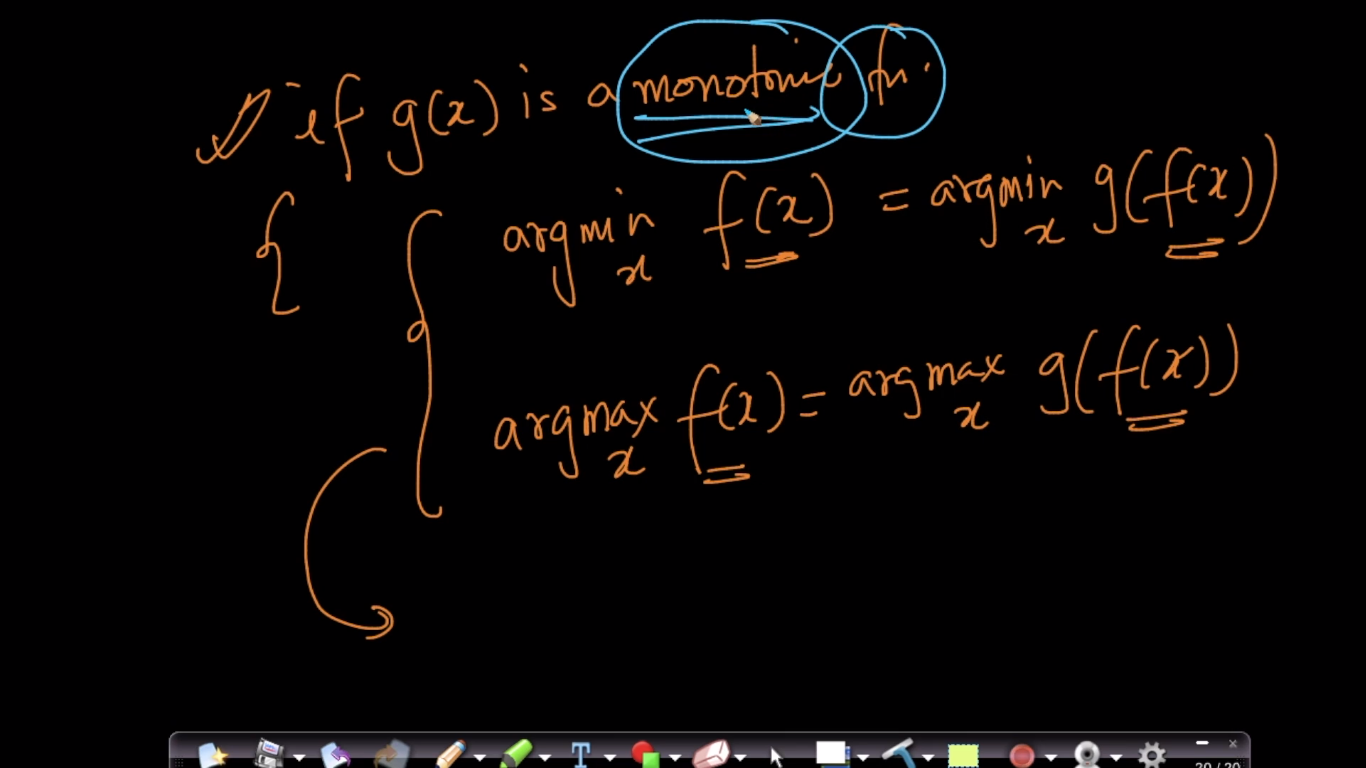 if g(x) is a monotonic fn.
argmin f(x) = argmin g(f(x))
x x
argmax f(x) = argmax g(f(x))
x x
T
20 / 20